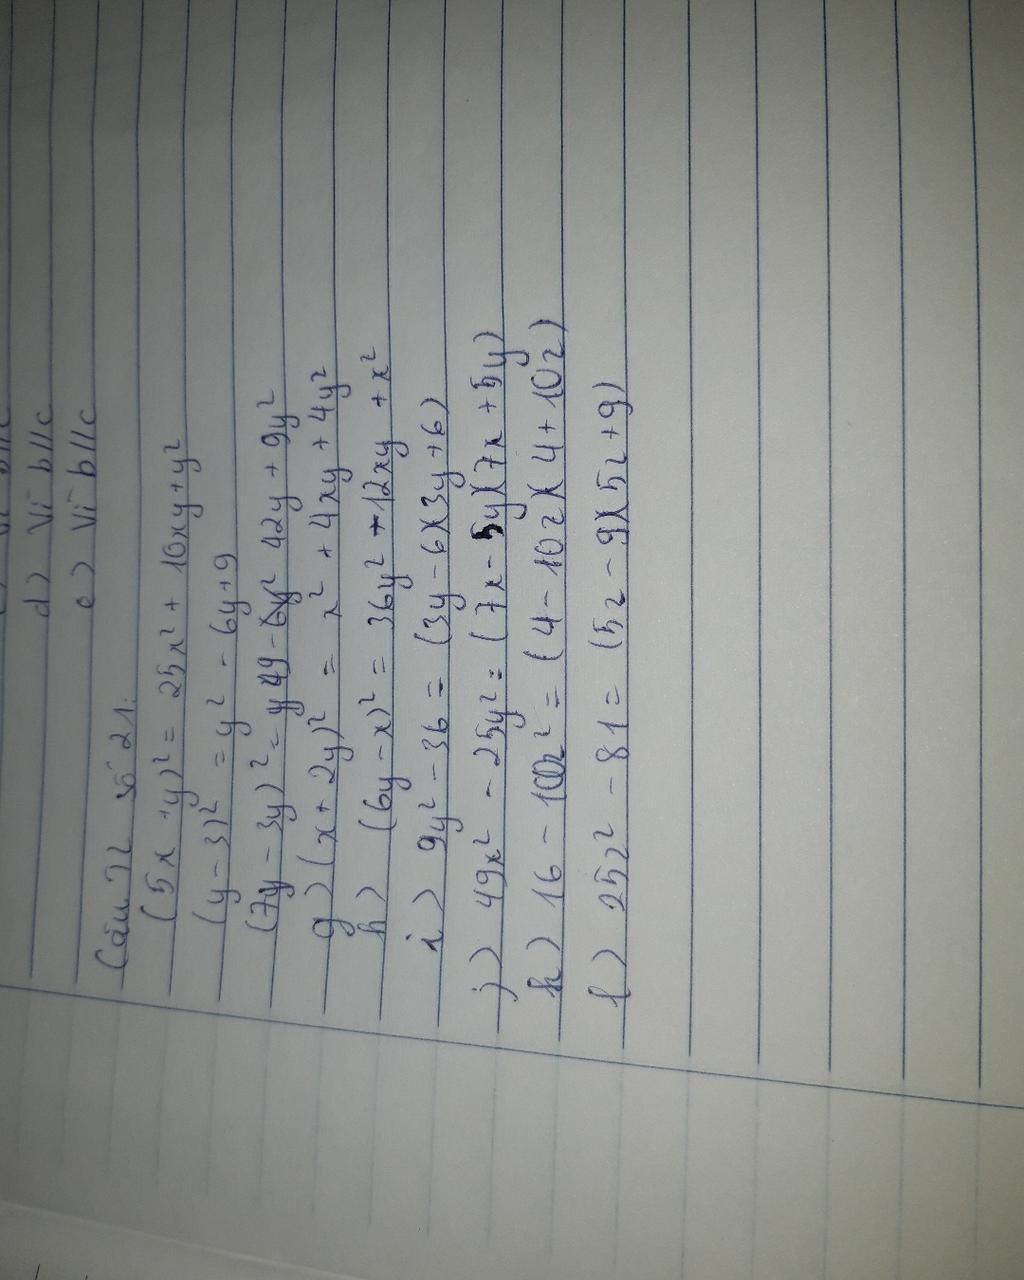 d) Vì b//c
e) Vì b//c
(5x + y)² = 25x² + 10xy + y²
(y - 3)² = y² - 6y + 9
(7y - 3y)² = 49 - 42y + 9y²
g) (x + 2y)² = x² + 4xy + 4y²
h) (6y - x)² = 36y² - 12xy + x²
i) 9y² - 36 = (3y - 6)(3y + 6)
j) 49x² - 25y² = (7x - 5y)(7x + 5y)
k) 16 - 100z² = (4 - 10z)(4 + 10z)
l) 25z² - 81 = (5z - 9)(5z + 9)